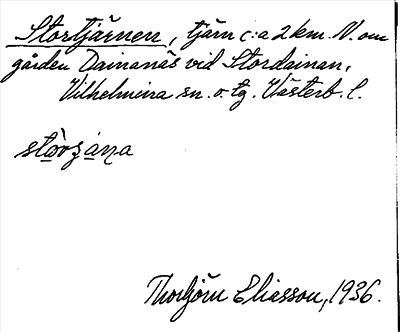 Stortjärnen, tjärn c:a 2 km. V. om
gården Dainanäs vid Stordainan,
Vilhelmina sn. o. tg. Västerb. l.
Thorbjörn Eliasson, 1936.